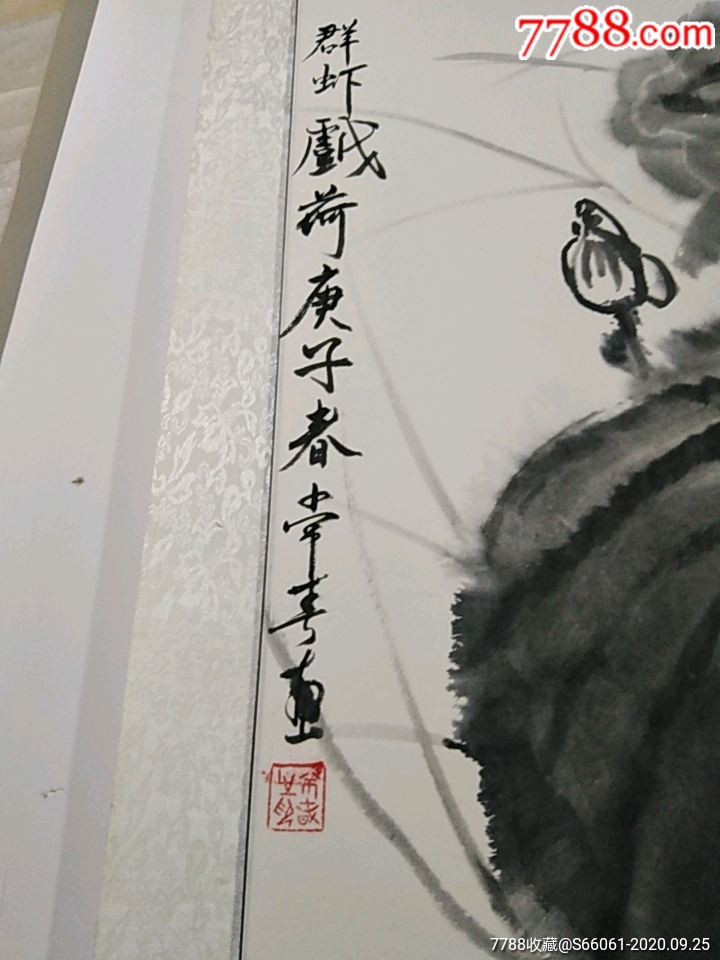 7788.com
群虾戯荷庚子春常寿画
7788收藏@S66061-2020.09.25